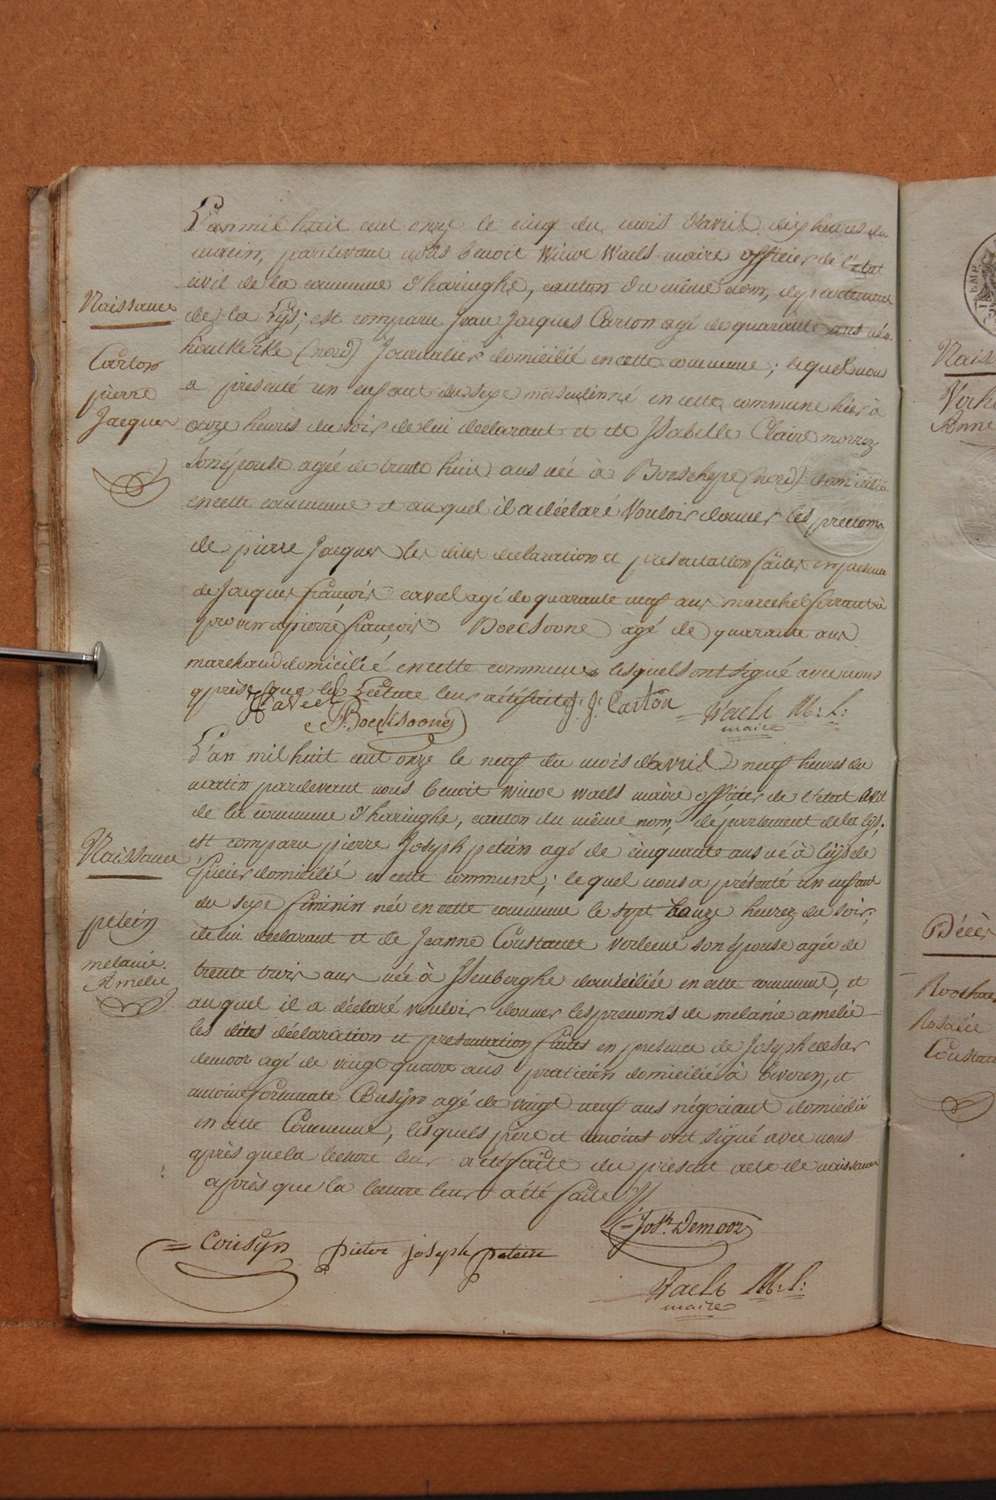 L'an mil huit cent onze le cinq du mois d'avril dix heures du
matin, pardevant nous Benoit Winoc Waels maire officier de l'état
civil de la commune d'haringhe, canton du même nom, département
de la Lÿs; est comparu Jean Jacques Carton agé de quarante ans né à
(nord) Journalier domicilié en cette commune; lequel nous
a présenté un enfant du sexe masculin né en cette commune hier à
onze heures du soir de lui déclarant et de Isabelle Claire
son épouse agée de trente huit ans née à (nord) domiciliée
en cette commune et auquel il a déclaré vouloir donner les prenoms
de pierre Jacques les dites declaration et presentation faites en presence
de Jacques françois caveel agé de quarante neuf ans marechel ferrant à
proven et pierre françois Boeksoone agé de quarante ans
marchand domicilié en cette commune lesquels ont signé avec nous
après que la Lecture leur a été faite J: J: Carton
Caveel
Boeksoone
Waels M.L:
maire
Naissance
Carton
pierre
Jacques
L'an mil huit cent onze le neuf du mois d'avril neuf heures du
matin pardevant nous benoit winoc waels maire officier de l'état civil
de la commune d'haringhe, canton du même nom, departement de la lÿs;
est comparu pierre Joseph petein agé de cinquante ans né à
domicilié en cette commune; lequel nous a présenté un enfant
du sexe feminin née en cette commune le sept heures du soir;
de lui declarant et de Jeanne Constance son épouse agée de
trente trois ans née à Isenberghe domiciliée en cette commune, et
auquel il a déclaré vouloir donner les prenoms de melanie amelie
les dites déclaration et presentation faites en presence de Joseph
demoor agé de vingt quatre ans praticien domicilié à et
antoine fortunate Cousÿn agé de vingt neuf ans négociant domicilié
en cette Commune, lesquels père et temoins ont signé avec nous
après que la lecture leur a été faite du présent acte de naissance
après que la lecture leur a été faite
Naissance
petein
melanie
Amelie
Jos. Demoor
Cousÿn pieter joseph petein
Waels M.L:
maire
Décès
Rosalie